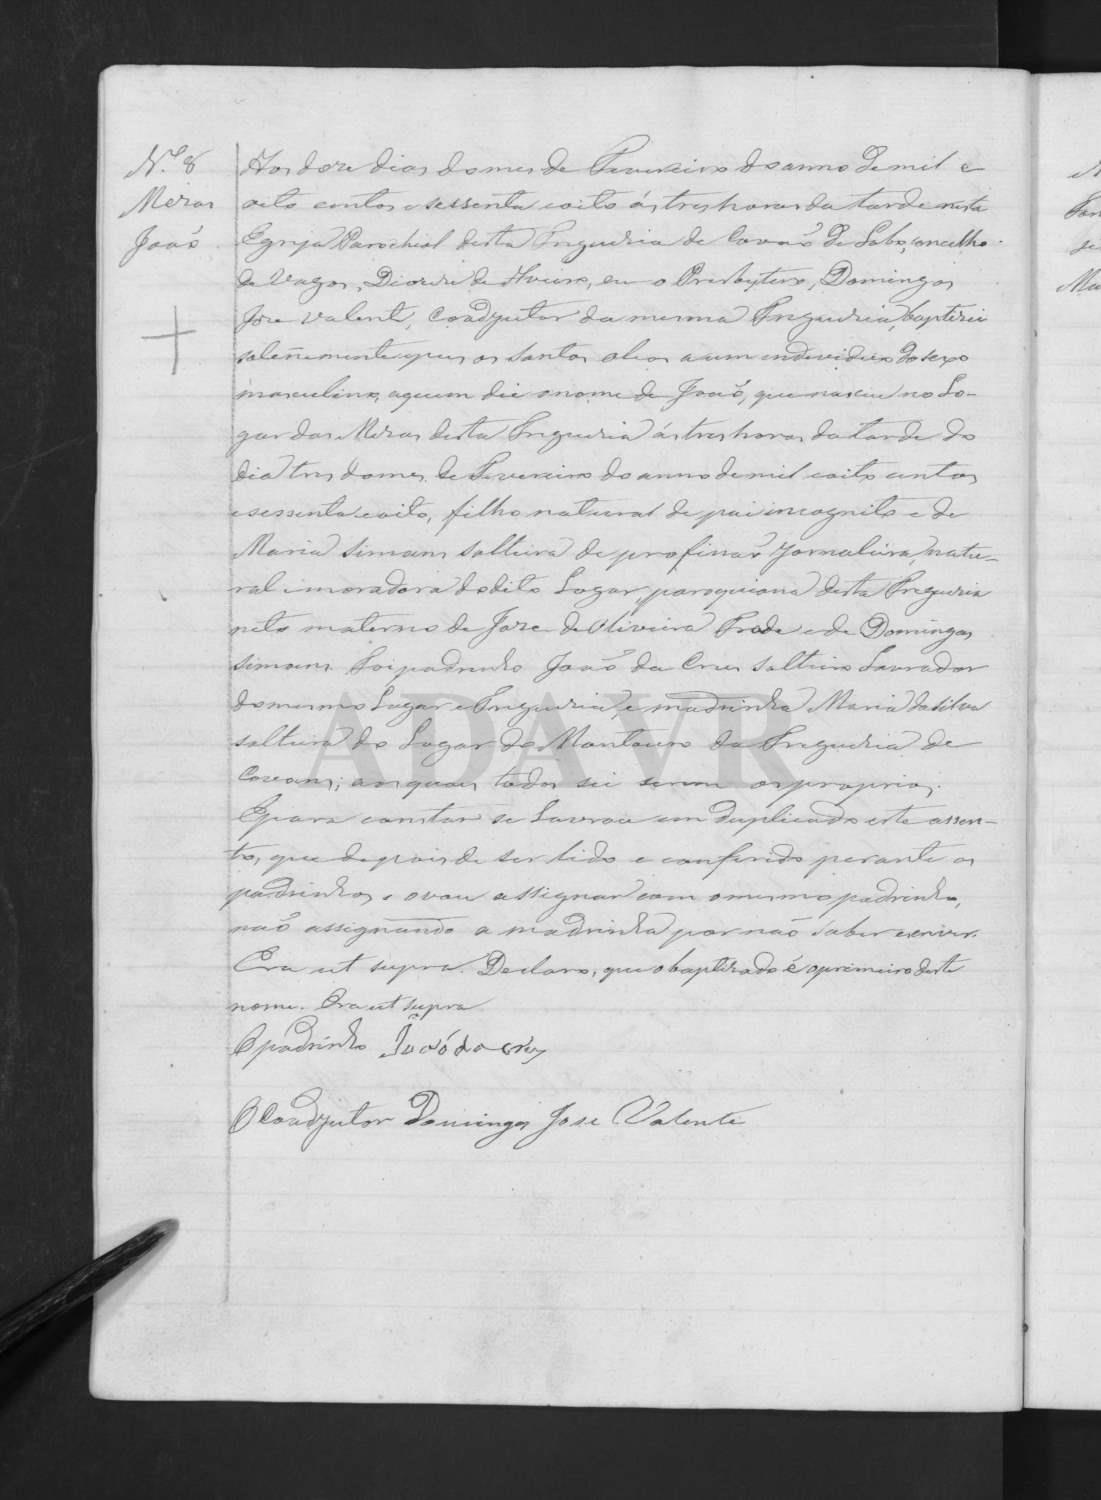 Nº 8
Mezas
João
Aos doze dias do mes de Fevereiro do anno de mil e
oito centos e sessenta e oito ás tres horas da tarde nesta
Egreja Parochial desta Freguezia de Covão do Lobo, concelho
de Vagos, Diocese de Aveiro, eu o Presbytero, Domingos
Jose Valente, Coadjutor da mesma Freguezia, baptizei
solenemente e pus os santos oleos a um individuo do sexo
masculino, a quem dei o nome de João, que nasceu no Lo-
gar das Mezas desta Freguezia ás tres horas da tarde do
dia tres do mes de Fevereiro do anno de mil e oito centos
e sessenta e oito, filho natural de pai incognito e de
Maria Simoens solteira de profissão Jornaleira, natu-
ral e moradora do dito Logar, paroquiana desta Freguezia
neto materno de Joze de Oliveira Frade e de Domingas
Simoens. Foi padrinho João da Cruz solteiro Lavrador
do mesmo Lugar e Freguezia, e madrinha Maria da Silva
solteira do Logar do Montouro da Freguezia de
Covoens; aos quaes todos sei serem os proprios.
E para constar se lavrou em duplicado este assen-
to, que depois de ser lido e conferido perante os
padrinhos, o vou assignar com o mesmo padrinho,
não assignando a madrinha por não saber escriver.
Era ut supra. Declaro, que o baptizado é o primeiro deste
nome. Era ut supra
O padrinho João da Cruz
O Coadjutor Domingos Jose Valente
ADAVR